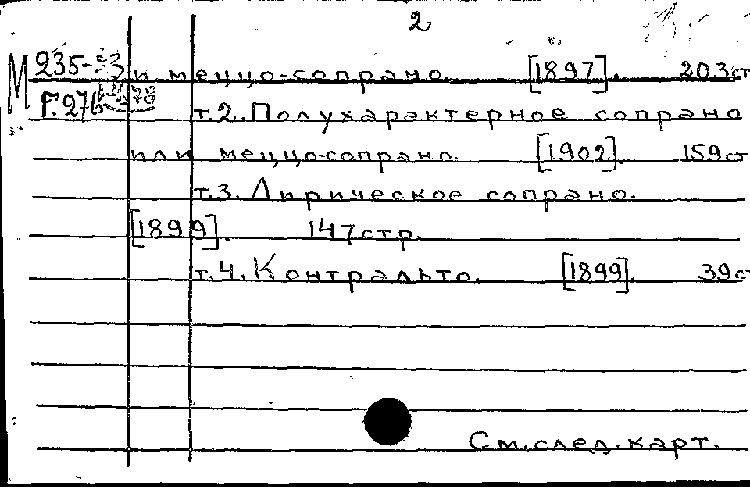 2
М 235-
и меццо-сопрано. [1897]. 203 ст
Г. 276
т.2. Полухарактерное сопрано
или меццо-сопрано. [1902]. 159 ст
т.3. Лирическое сопрано.
[1899]. 147 стр.
т.4. Контральто. [1899]. 39 ст
См. след. карт.